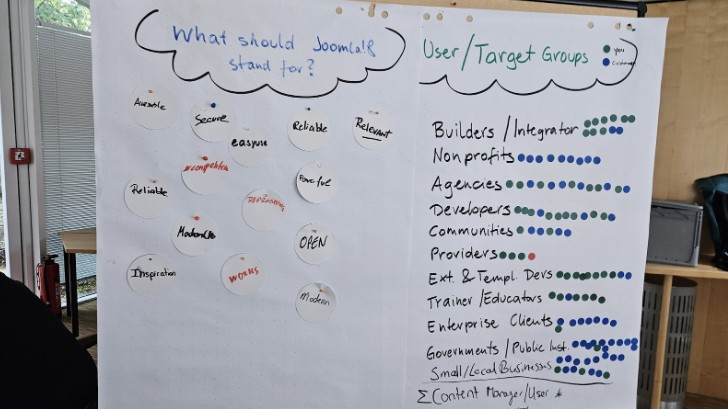 What should Joomla!8
stand for?
Secure
easy use
Reliable
Relevant
Reliable
Powerful
Modern
OPEN
Inspiration
works
Modern
User/Target Groups
Builders/Integrator
Nonprofits
Agencies
Developers
Communities
Providers
Ext. & Templ. Devs
Trainer/Educators
Enterprise Clients
Governments/Public Inst.
Small/Local Businesses
Σ Content Manager/User *